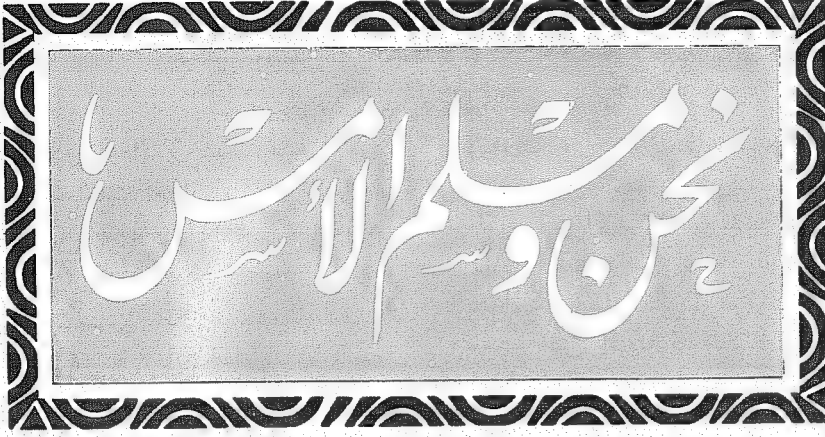 نحن ومسلم الأمس